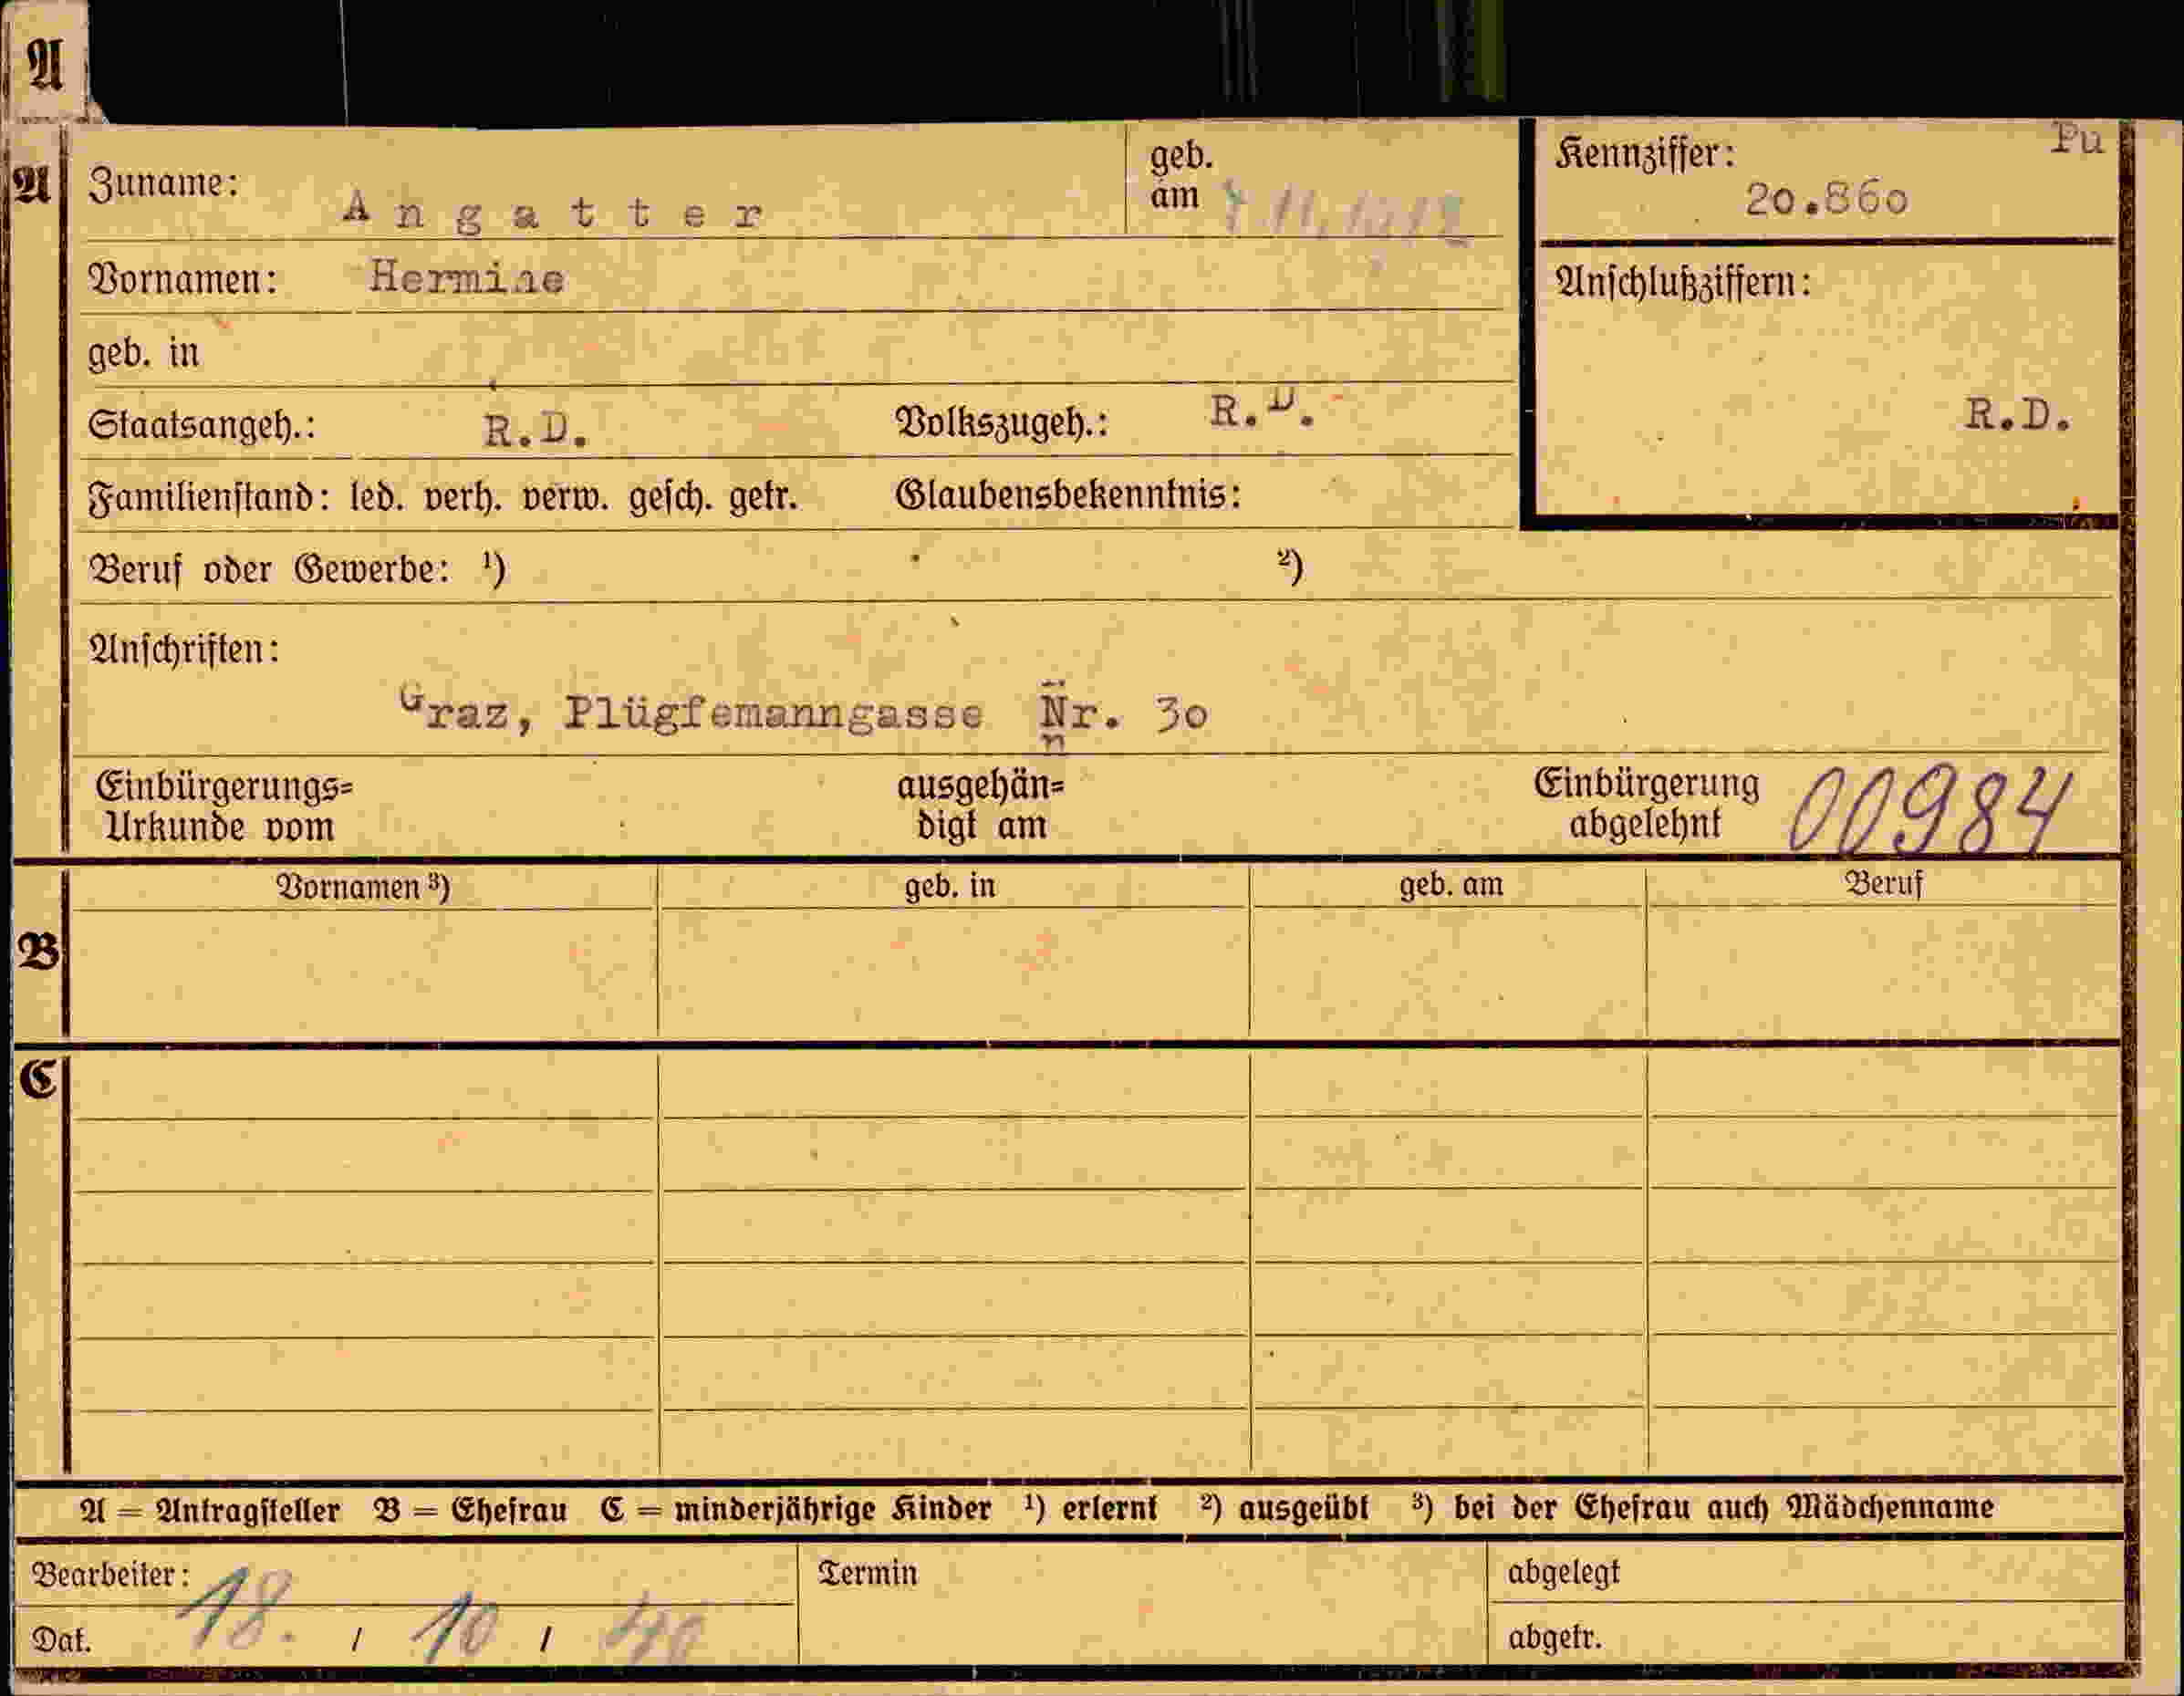 A
A Zuname: Angatter geb. am
Kennziffer: Pu
20.860
Vornamen: Hermine
Anschlußziffern:
geb. in
Staatsangeh.: R.D. Volkszugeh.: R.D.
R.D.
Familienstand: led. verh. verw. gesch. getr. Glaubensbekenntnis:
Beruf oder Gewerbe: ¹) ²)
Anschriften:
Graz, Plügfemanngasse Nr. 30
n
Einbürgerungs= ausgehän= Einbürgerung 00984
Urkunde vom digt am abgelehnt
Vornamen ³) geb. in geb. am Beruf
B
C
A = Antragsteller B = Ehefrau C = minderjährige Kinder ¹) erlernt ²) ausgeübt ³) bei der Ehefrau auch Mädchenname
Bearbeiter: Termin abgelegt
Dat. 18. / 10 / 40 abgetr.